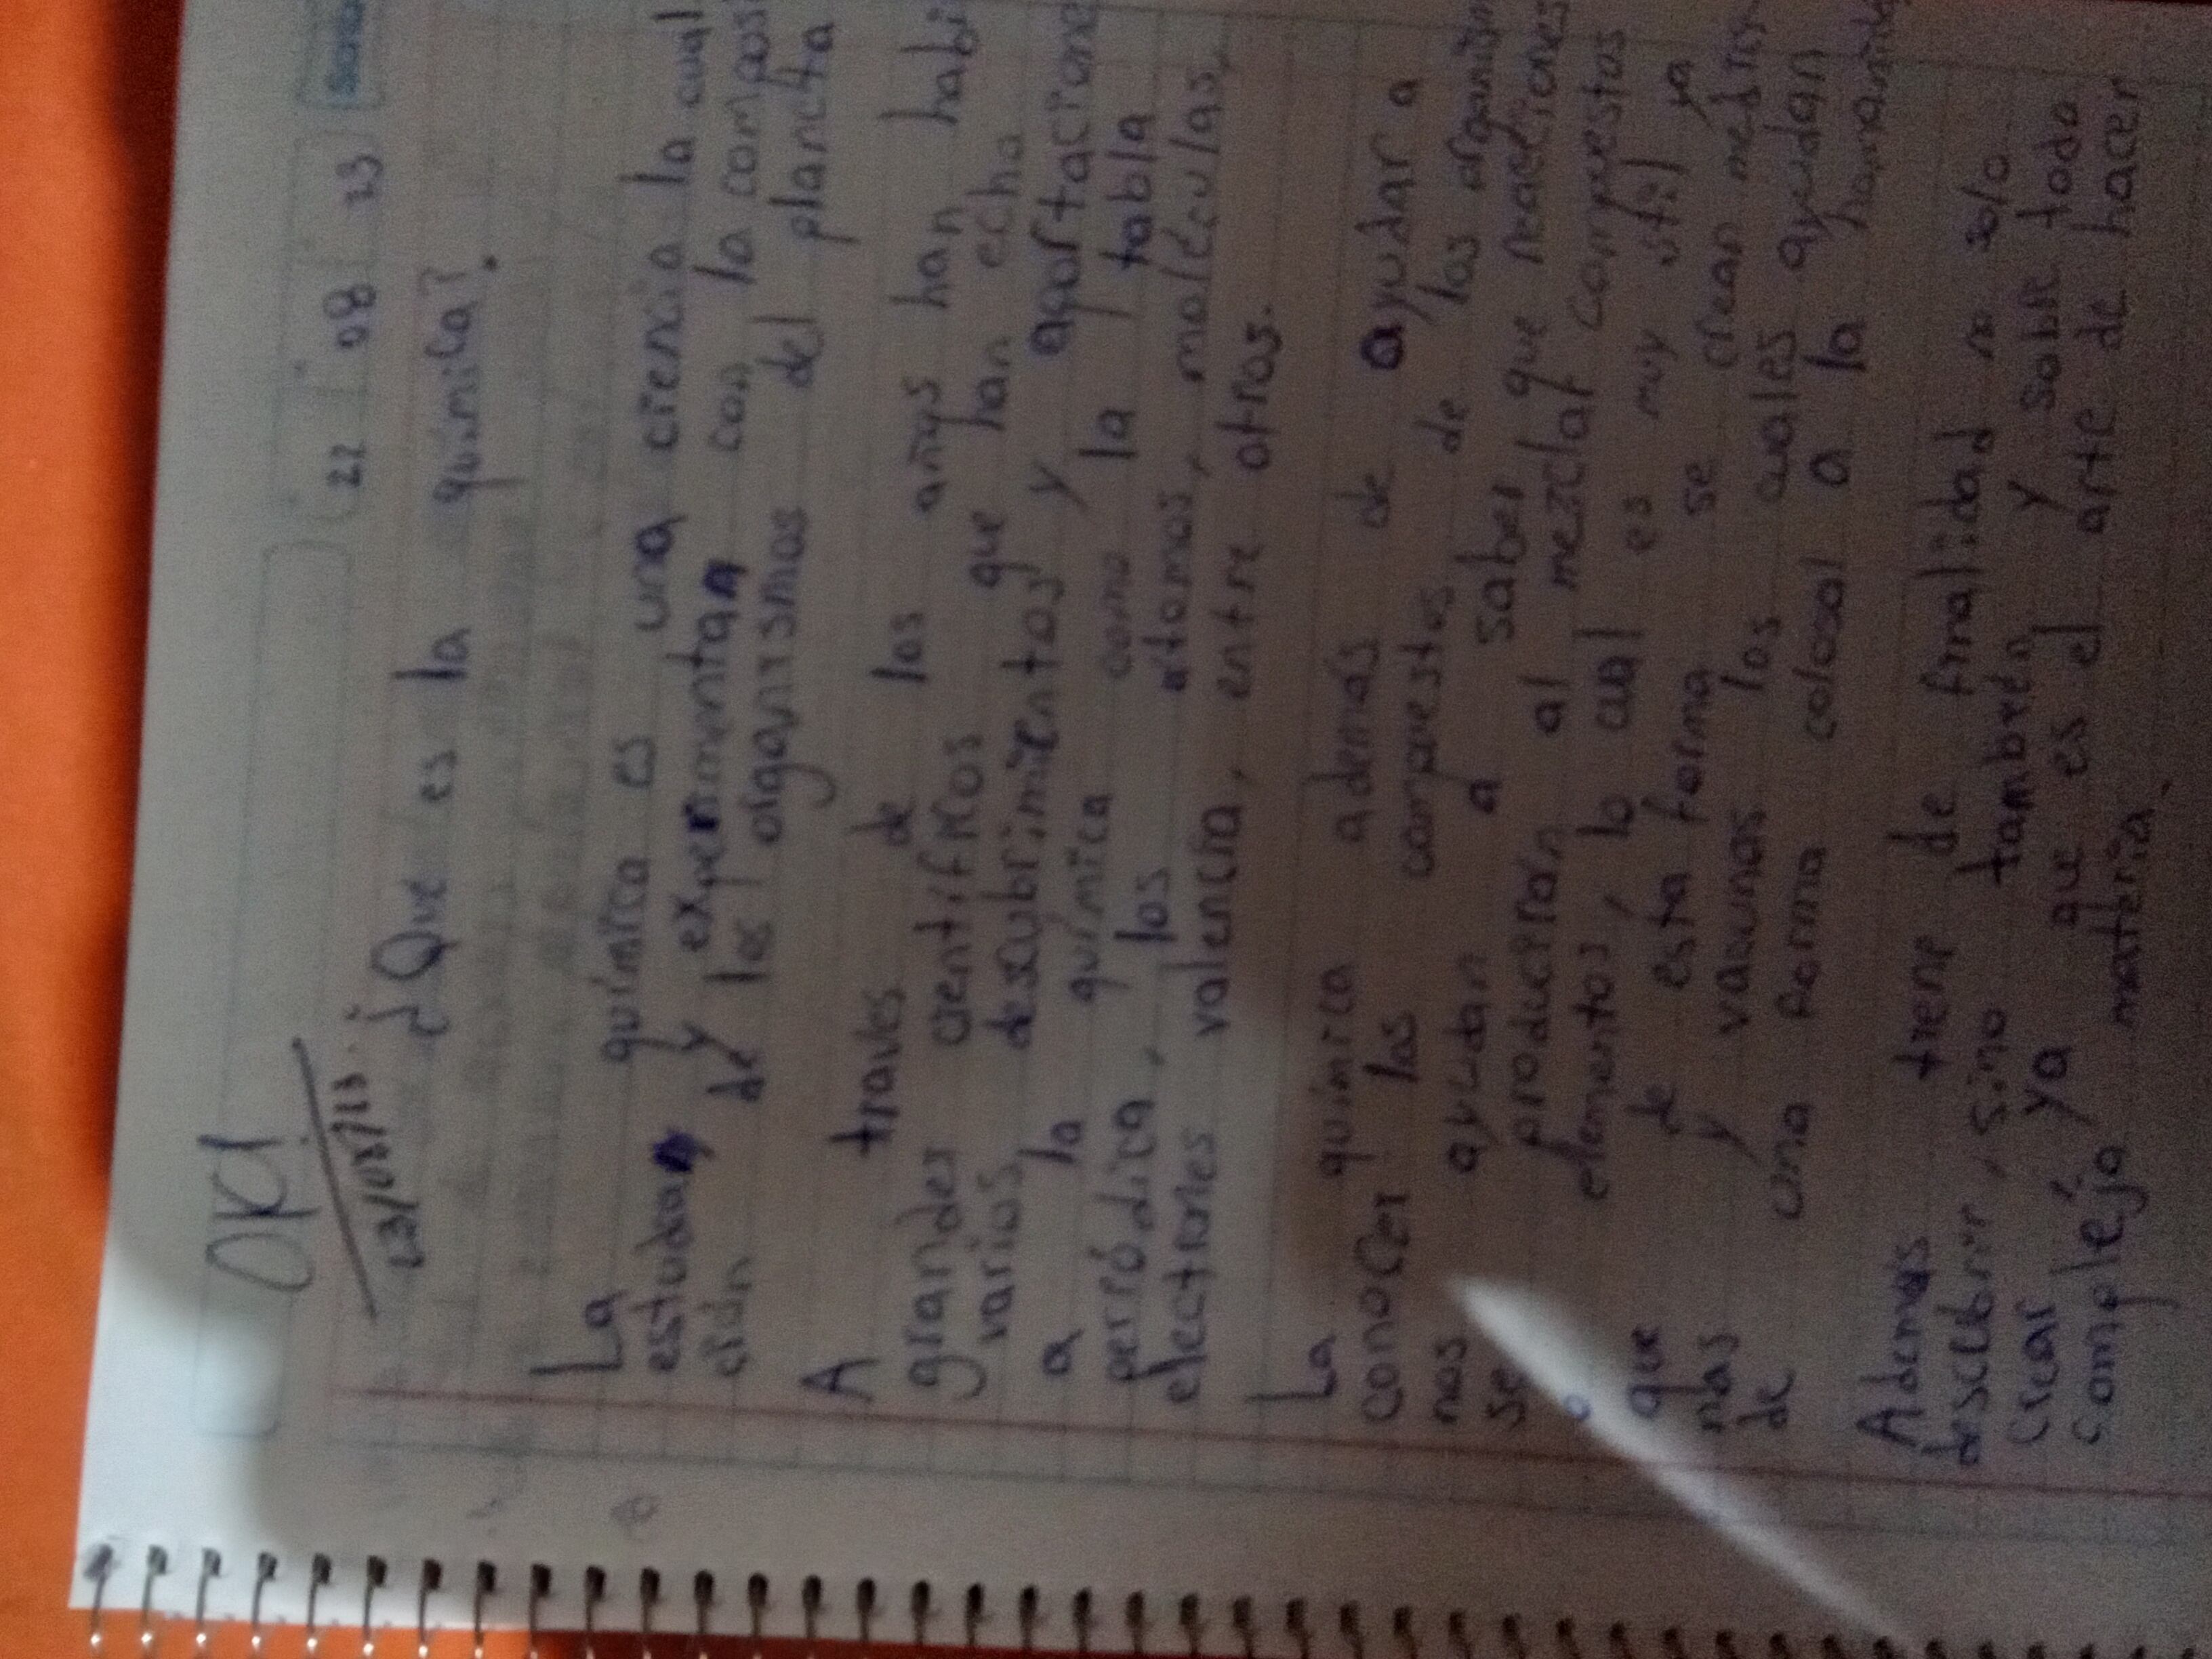 22 08 23
OK!
23/08/23
¿Que es la química?
La química es una ciencia la cual
estudian y experimentan con la compos
ción de los organismos del planeta
A traves de los años han habi
grandes cientificos que han echo
varios descubrimientos y aportacione
a la química como la tabla
periódica, los atomos, moléculas,
electrones valencia, entre otros.
La química ademas de ayudar a
conocer los compuestos de los organism
nos ayudan a saber que reacciones
se produciran al mezclar compuestos
o elementos, lo cual es muy util ya
que de esta forma se crean medici
nas y vacunas los cuales ayudan
de una forma colosal a la humanida
Ademas tiene de finalidad no solo
descubrir, sino también y sobre todo
crear, ya que es el arte de hacer
compleja materia.